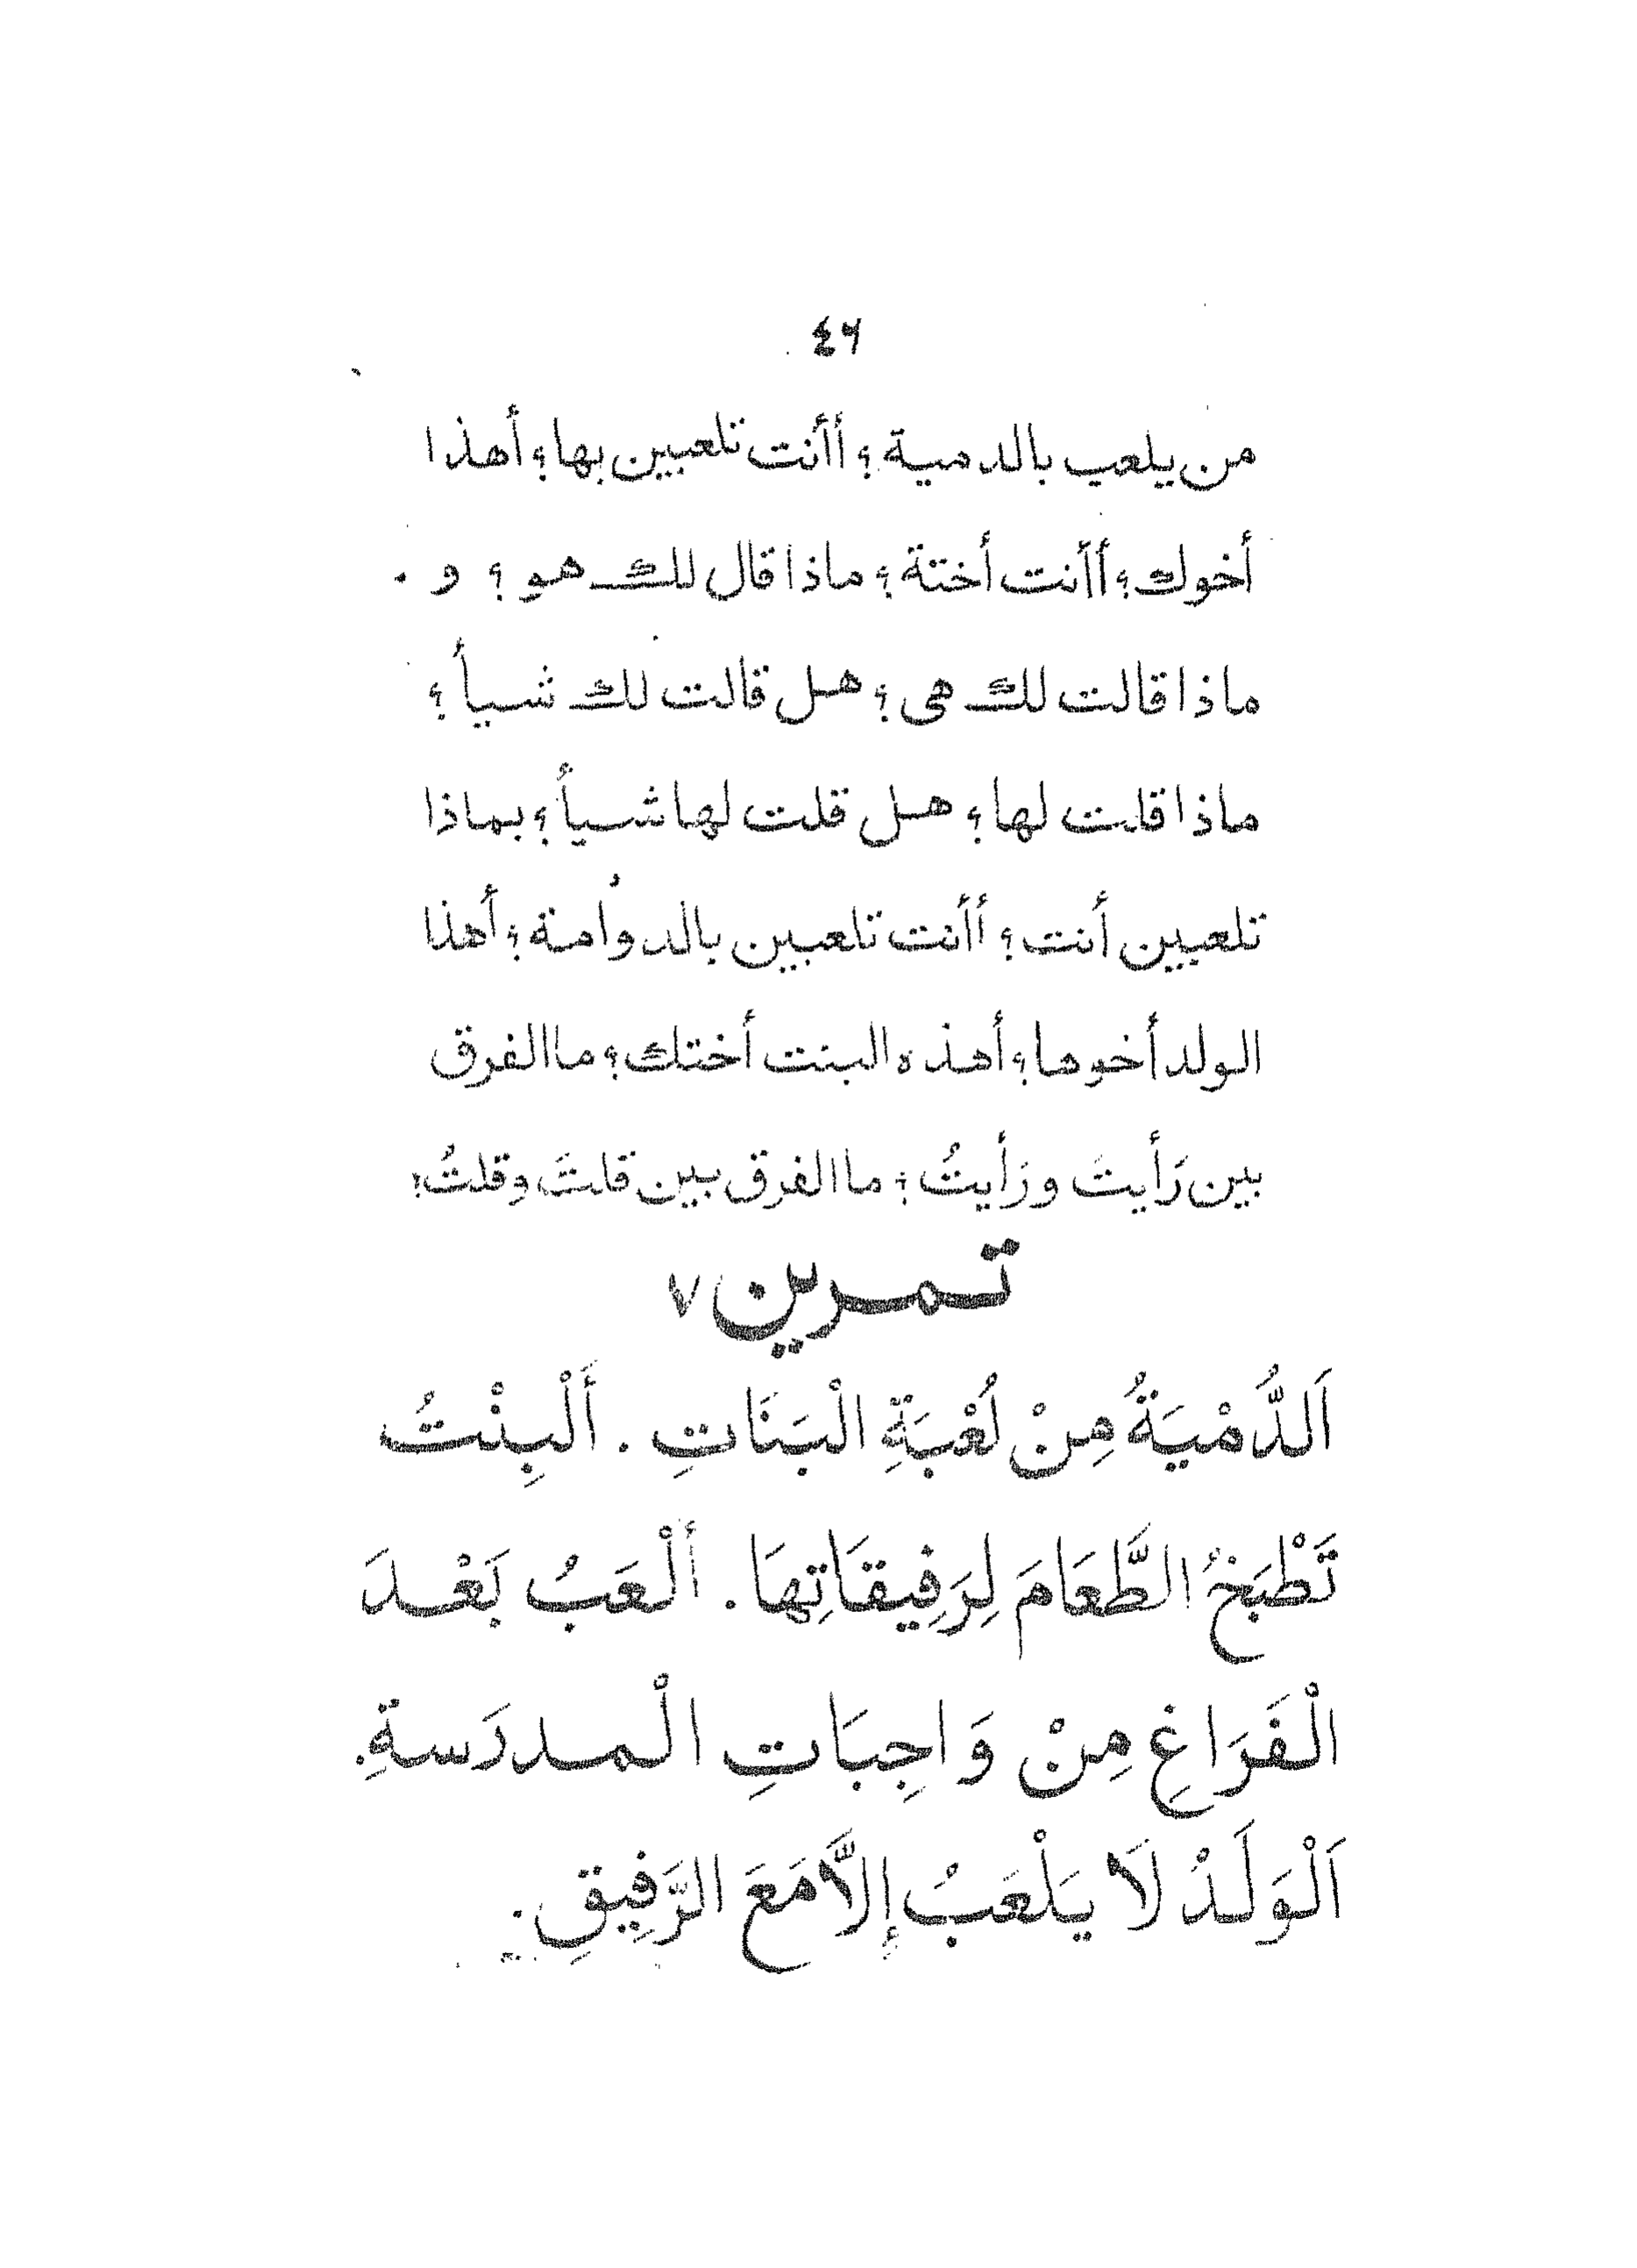 ٤٦
من يلعب بالدمية؟ أأنت تلعبين بها؟ أهذا
أخوك؟ أأنت أختة؟ ماذا قال لك هو؟ و
ماذا قالت لك هى؟ هل قالت لك شيأ؟
ماذا قلت لها؟ هل قلت لها شيأ؟ بماذا
تلعبين أنت؟ أأنت تلعبين بالدوُامة؟ أهذا
الولد أخوها؟ أهذه البنت أختك؟ ما الفرق
بين رَأيتَ ورَأيتُ؟ ما الفرق بين قلتَ وقلتُ؟
تمرين ٧
اَلدُّمْيَةُ مِنْ لُعْبَةِ الْبَنَاتِ. أَلْبِنْتُ
تَطْبَخُ الطَّعَامَ لِرَفِيقَاتِهَا. ألْعَبُ بَعْدَ
الْفَرَاغِ مِنْ وَاجِبَاتِ الْمدرَسةِ.
اَلْوَلَدُ لَا يَلْعَبُ إِلَّا مَعَ الرَّفِيقِ.